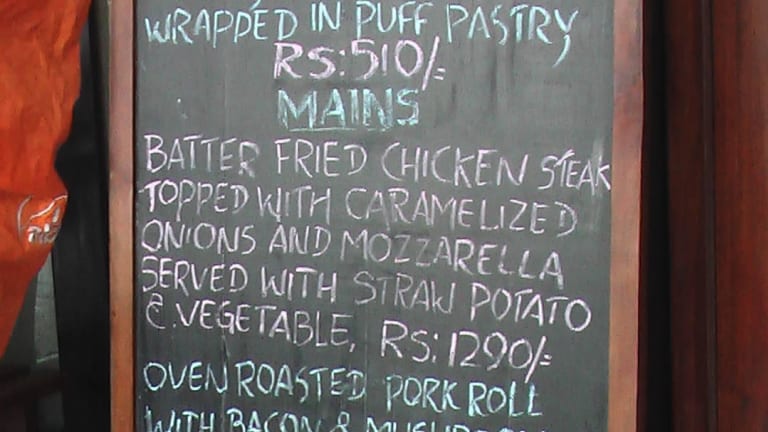 WRAPPED IN PUFF PASTRY
RS:510/=
MAINS
BATTER FRIED CHICKEN STEAK
TOPPED WITH CARAMELIZED
ONIONS AND MOZZARELLA
SERVED WITH STRAW POTATO
&.VEGETABLE, RS:1290/=
OVEN ROASTED PORK ROLL
WITH BACON & MUSHROOM